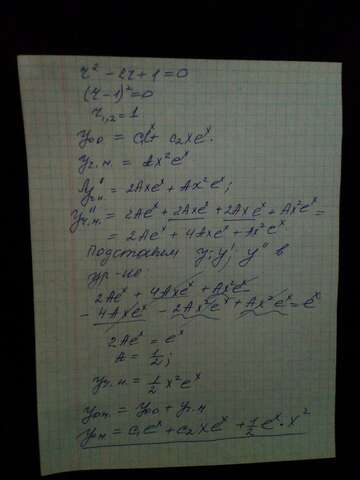 r² - 2r + 1 = 0
(r - 1)² = 0
r₁,₂ = 1
y₀₀ = c₁eˣ + c₂xeˣ.
yч.н. = Ax²eˣ
y'ч.н. = 2Axeˣ + Ax²eˣ;
y''ч.н. = 2Aeˣ + 2Axeˣ + 2Axeˣ + Ax²eˣ =
= 2Aeˣ + 4Axeˣ + Ax²eˣ
Подставим y; y'; y'' в
ур-ие:
2Aeˣ + 4Axeˣ + Ax²eˣ
- 4Axeˣ - 2Ax²eˣ + Ax²eˣ = eˣ
2Aeˣ = eˣ
A = 1/2;
yч.н. = 1/2 x²eˣ
yон. = y₀₀ + yч.н
yон = c₁eˣ + c₂xeˣ + 1/2 eˣ · x²